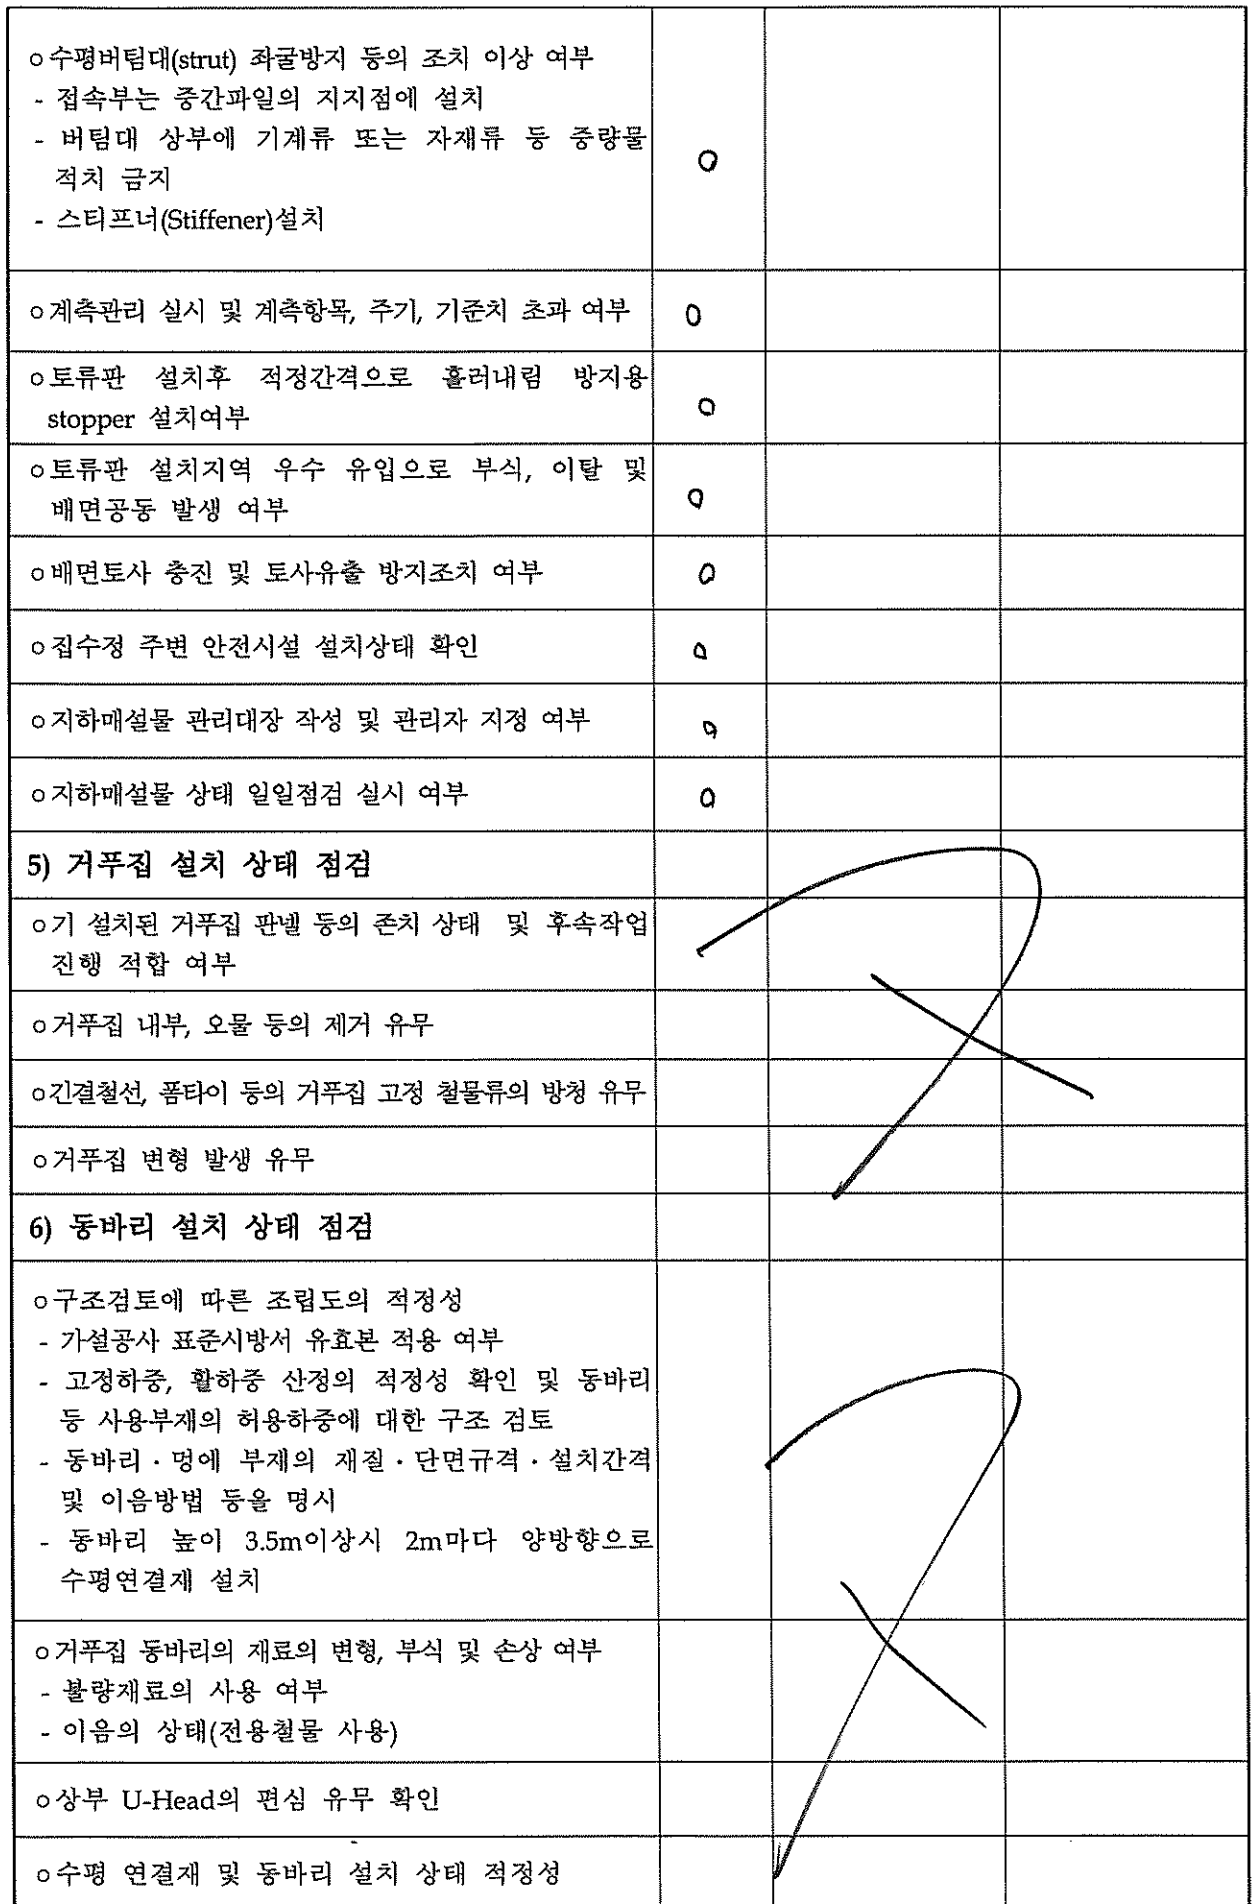 ㅇ수평버팀대(strut) 좌굴방지 등의 조치 이상 여부
- 접속부는 중간파일의 지지점에 설치
- 버팀대 상부에 기계류 또는 자재류 등 중량물
적치 금지
- 스티프너(Stiffener)설치
ㅇ
ㅇ계측관리 실시 및 계측항목, 주기, 기준치 초과 여부
ㅇ
ㅇ토류판 설치후 적정간격으로 흘러내림 방지용
stopper 설치여부
ㅇ
ㅇ토류판 설치지역 우수 유입으로 부식, 이탈 및
배면공동 발생 여부
ㅇ
ㅇ배면토사 충진 및 토사유출 방지조치 여부
ㅇ
ㅇ집수정 주변 안전시설 설치상태 확인
ㅇ
ㅇ지하매설물 관리대장 작성 및 관리자 지정 여부
ㅇ
ㅇ지하매설물 상태 일일점검 실시 여부
ㅇ
5) 거푸집 설치 상태 점검
ㅇ기 설치된 거푸집 판넬 등의 존치 상태 및 후속작업
진행 적합 여부
ㅇ거푸집 내부, 오물 등의 제거 유무
ㅇ긴결철선, 폼타이 등의 거푸집 고정 철물류의 방청 유무
ㅇ거푸집 변형 발생 유무
6) 동바리 설치 상태 점검
ㅇ구조검토에 따른 조립도의 적정성
- 가설공사 표준시방서 유효본 적용 여부
- 고정하중, 활하중 산정의 적정성 확인 및 동바리
등 사용부재의 허용하중에 대한 구조 검토
- 동바리·멍에 부재의 재질·단면규격·설치간격
및 이음방법 등을 명시
- 동바리 높이 3.5m이상시 2m마다 양방향으로
수평연결재 설치
ㅇ거푸집 동바리의 재료의 변형, 부식 및 손상 여부
- 불량재료의 사용 여부
- 이음의 상태(전용철물 사용)
ㅇ상부 U-Head의 편심 유무 확인
ㅇ수평 연결재 및 동바리 설치 상태 적정성